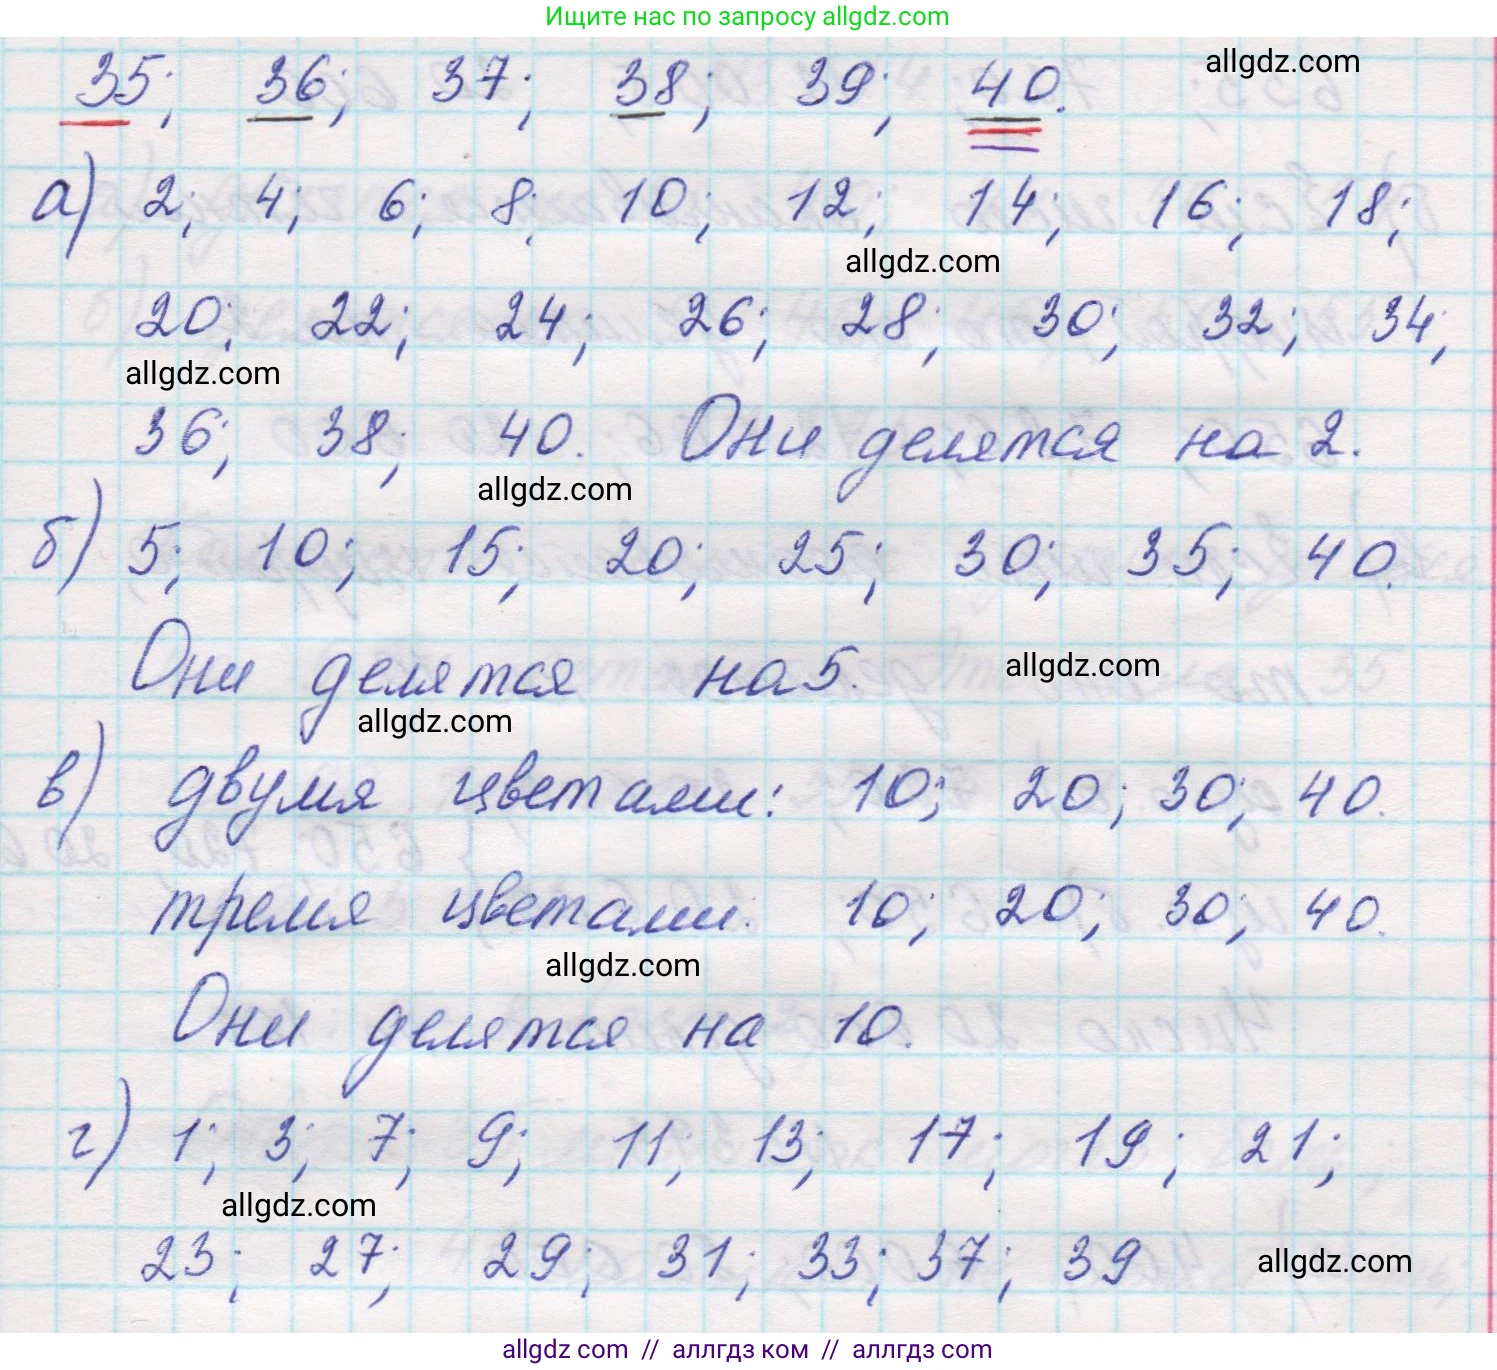 Ищите нас по запросу allgdz.com
35; 36; 37; 38; 39; 40.
allgdz.com
а) 2; 4; 6; 8; 10; 12; 14; 16; 18;
allgdz.com
20; 22; 24; 26; 28; 30; 32; 34;
allgdz.com
36; 38; 40. Они делятся на 2.
allgdz.com
б) 5; 10; 15; 20; 25; 30; 35; 40.
Они делятся на 5.
allgdz.com
allgdz.com
в) двумя цветами: 10; 20; 30; 40.
тремя цветами: 10; 20; 30; 40.
allgdz.com
Они делятся на 10.
г) 1; 3; 7; 9; 11; 13; 17; 19; 21;
allgdz.com
23; 27; 29; 31; 33; 37; 39
allgdz.com
allgdz.com // аллгдз ком // аллгдз.com